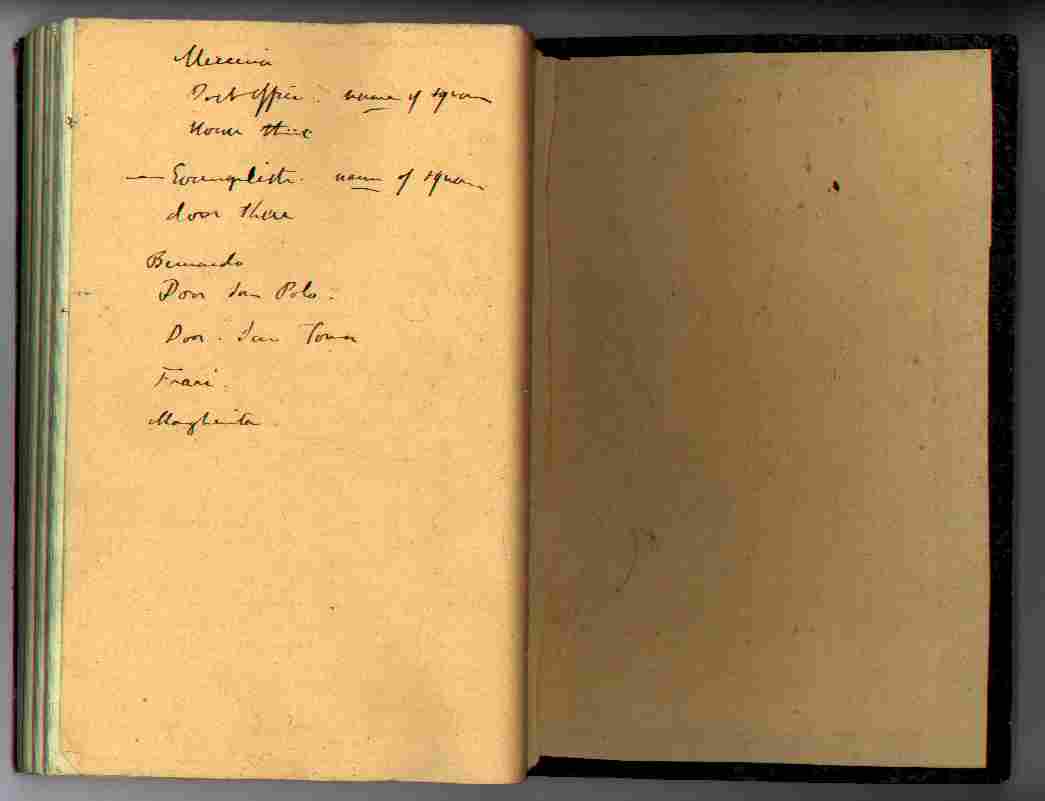 Post Office. name of square
House there
— Evangelist. name of square
door there
Bernardo
Door San Polo.
Door. San Toma
Frari.
Margherita.